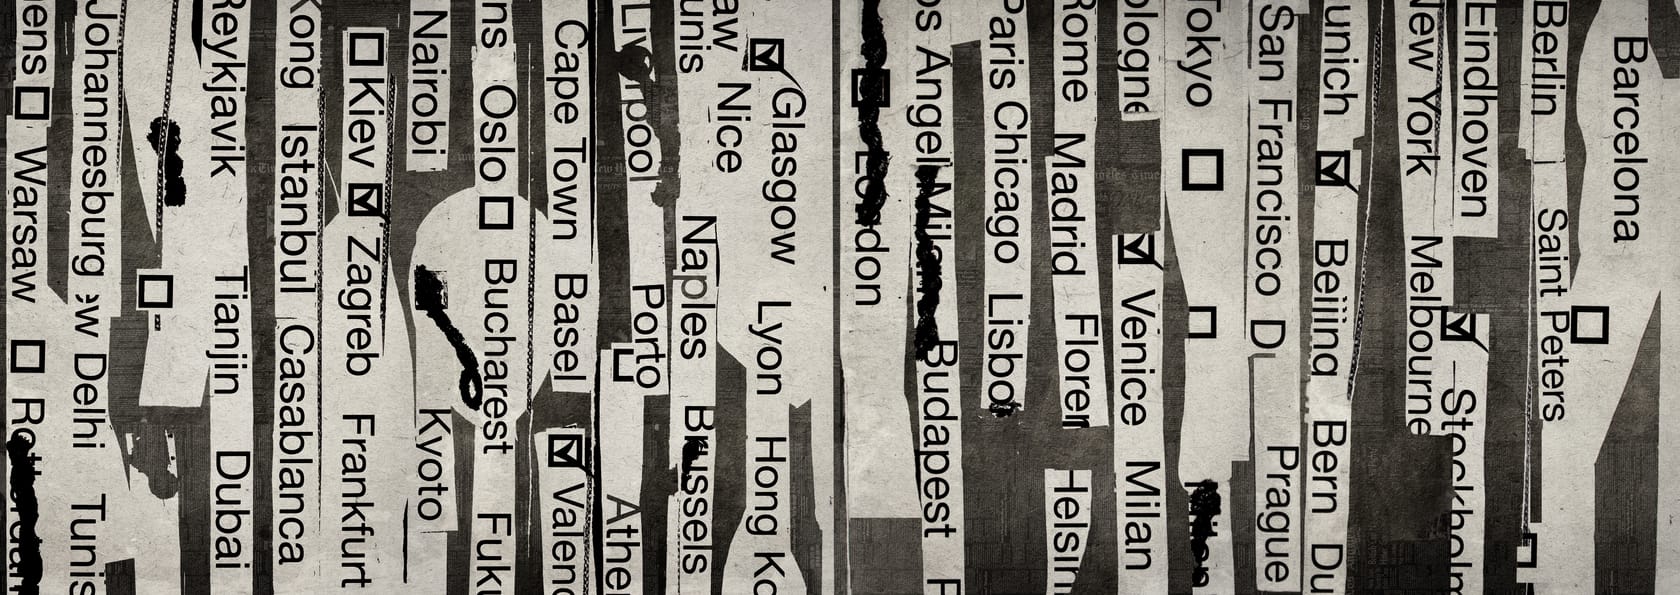 Barcelona
Berlin Saint Peters
Eindhoven Stockholm
New York Melbourne
unich Beijing Bern Du
San Francisco D Prague
Tokyo
ologne Venice Milan
Rome Madrid Floren Helsin
Paris Chicago Lisbo
os Angel Budapest F
London
Glasgow Lyon Hong Ko
aw Nice
unis Naples Brussels
Liverpool Porto Athe
Cape Town Basel Valenc
ns Oslo Bucharest Fuku
Nairobi Kyoto
Kiev Zagreb Frankfurt
Kong Istanbul Casablanca
Reykjavik Tianjin Dubai
Johannesburg ew Delhi Tunis
ens Warsaw